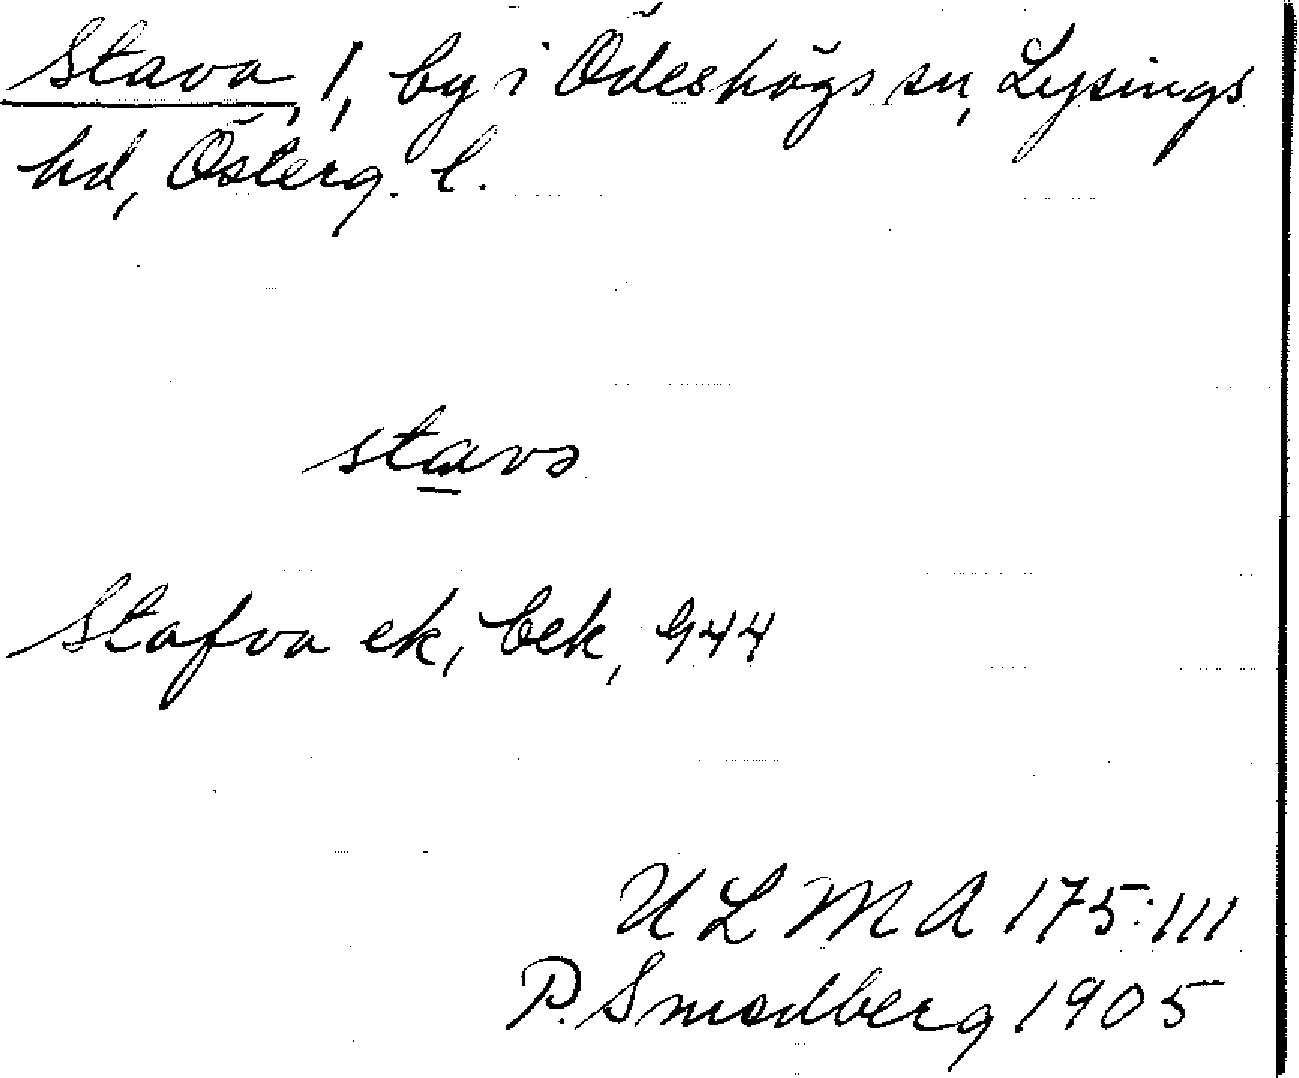 Stava, 1, by i Ödeshögs sn, Lysings
hd, Österg. l.
stavɔ
Stafva ek, bek, 944
ULMA 175:111
P. Smedberg 1905